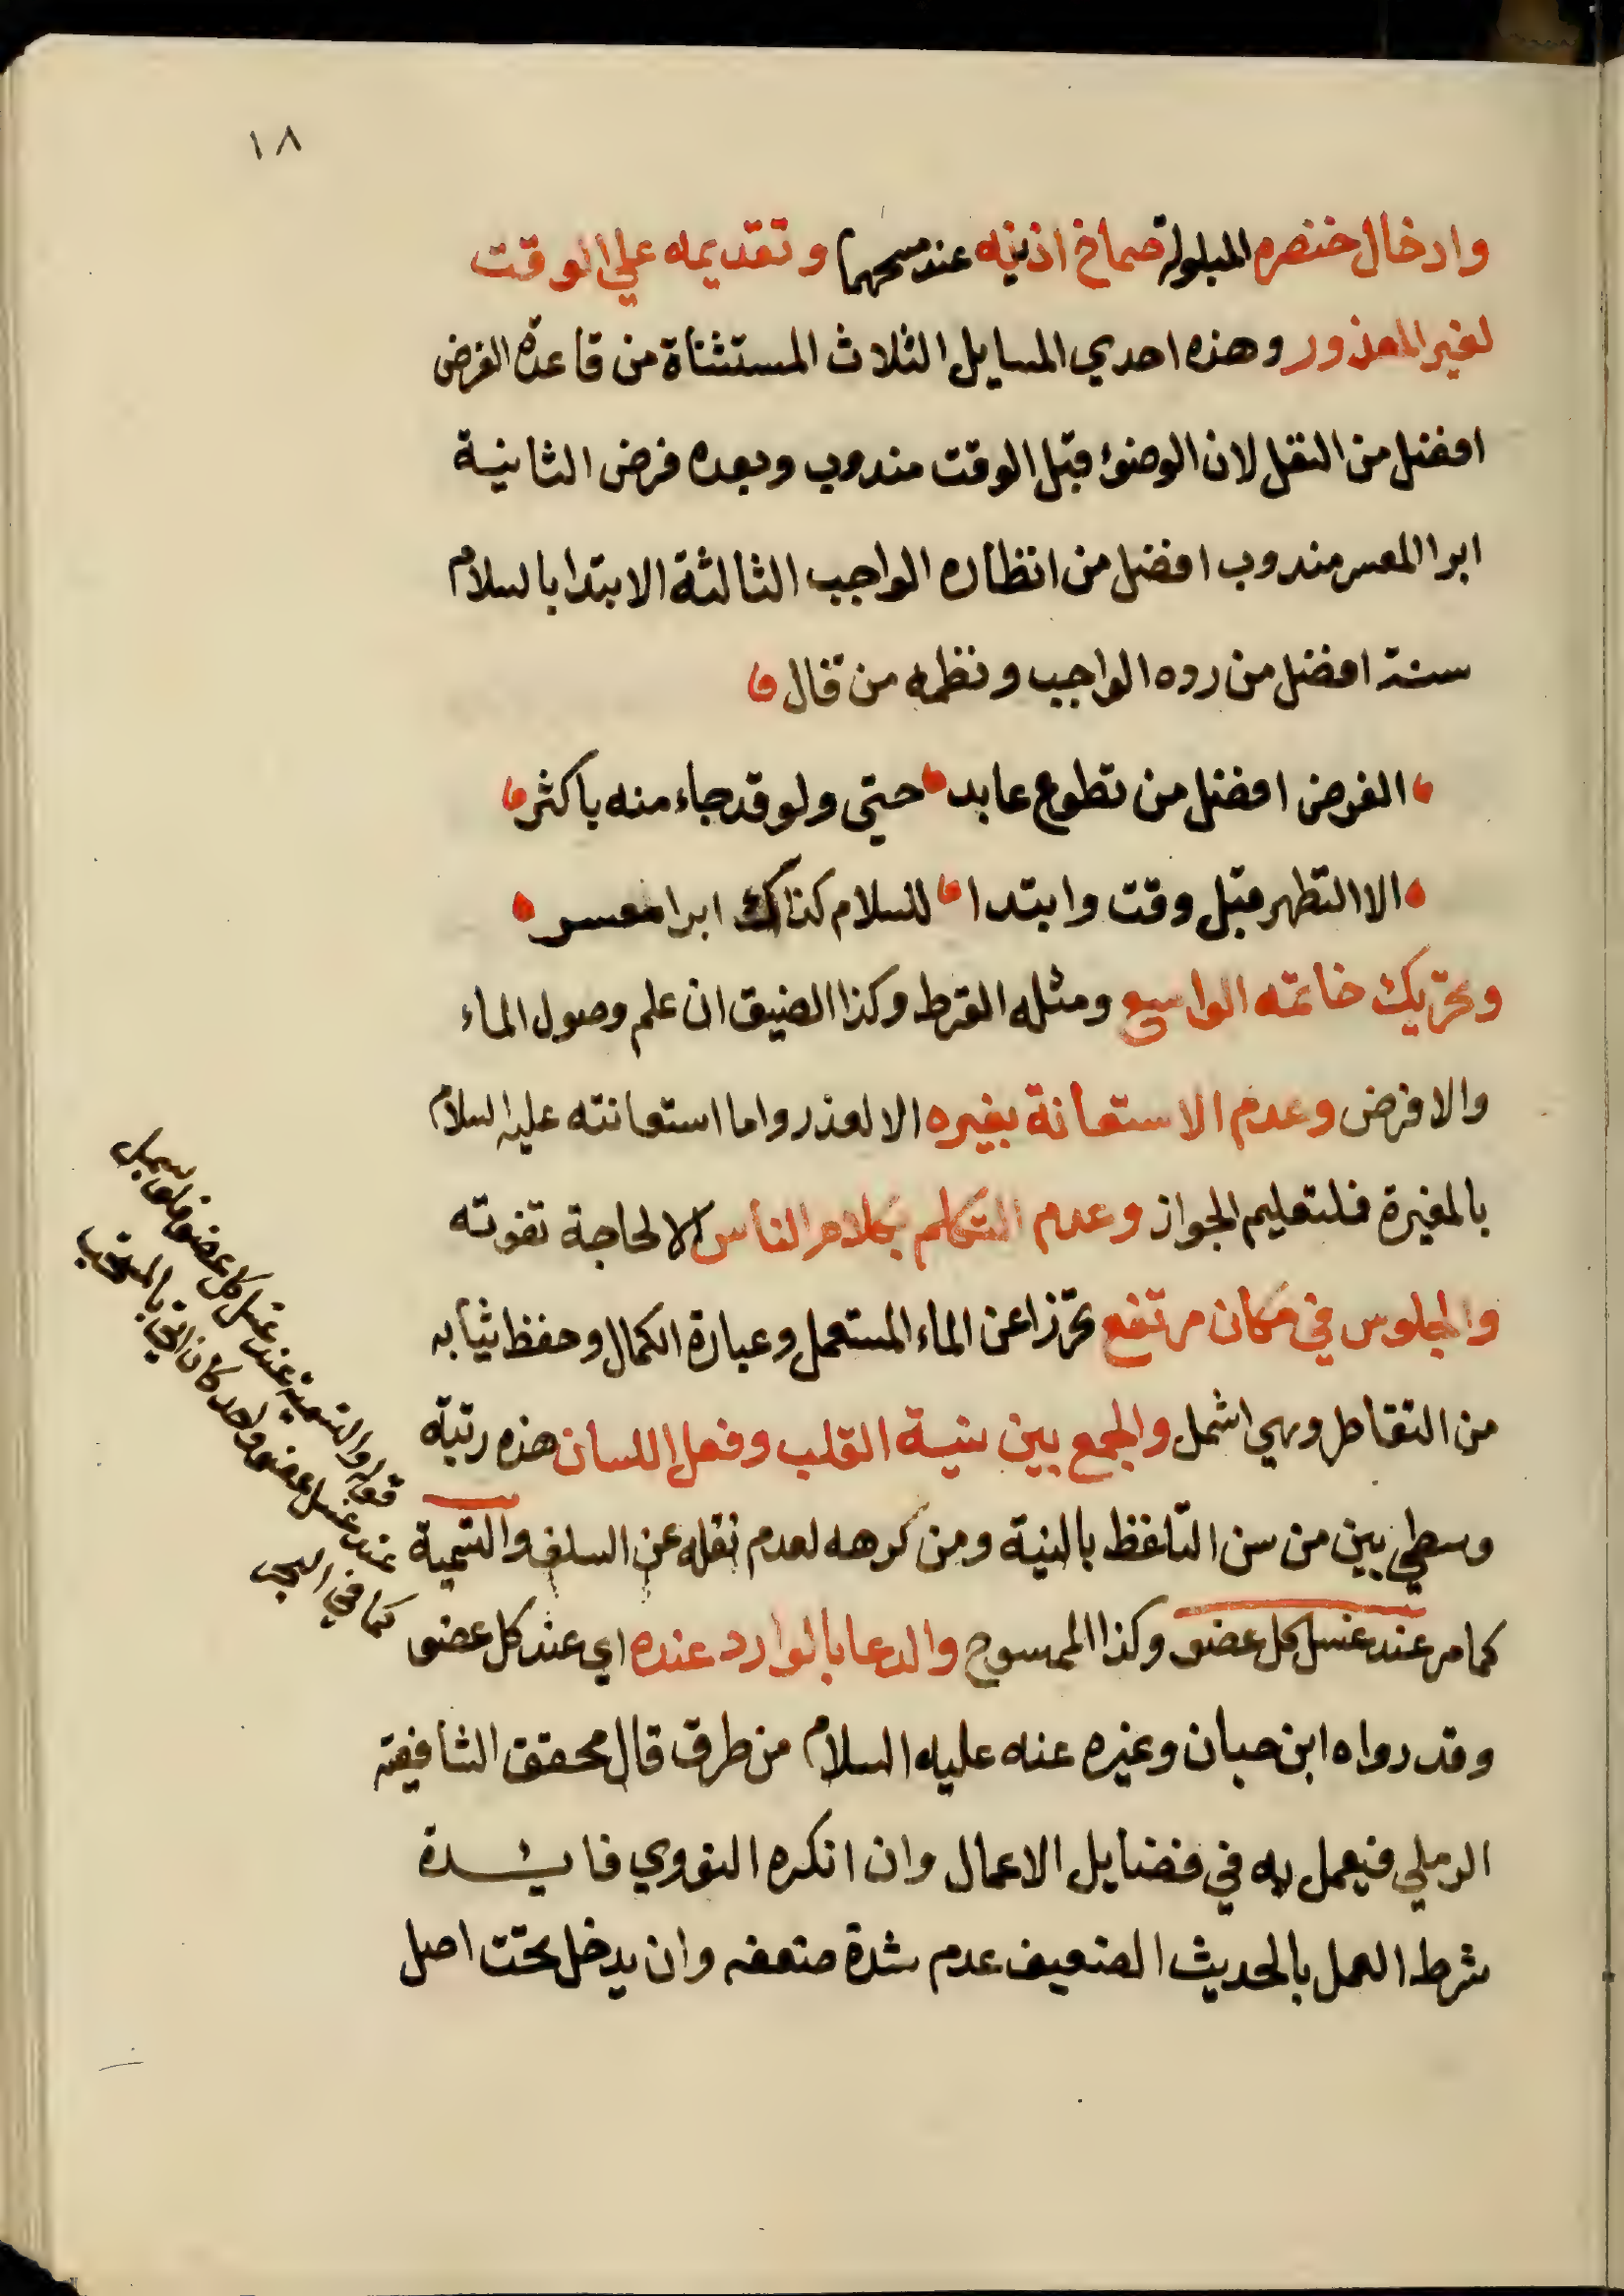 ١٨
وادخال خنصره المبلولة صماخ اذنيه عند مسحهما وتقديمه علي الوقت
لغير المعذور وهذه احدي المسايل الثلاث المستثناة من قاعدة الفرض
افضل من النفل لان الوضوء قبل الوقت مندوب وبعده فرض الثانية
ابرا المعسر مندوب افضل من انظاره الواجب الثالثة الابتدا بالسلام
سنة افضل من رده الواجب ونظمه من قال
الفرض افضل من تطوع عابد حتى ولو قد جاء منه باكثر
الا التطهر قبل وقت وابتدا للسلام كذاك ابرا معسر
وتحريك خاتمه الواسع ومثله القرط وكذا الضيق ان علم وصول الماء
والا فرض وعدم الاستعانة بغيره الا لعذر واما استعانته عليه السلام
بالمغيرة فلتعليم الجواز وعدم التكلم بكلام الناس الا لحاجة تفوته
والجلوس في مكان مرتفع تحرزا عن الماء المستعمل وعبارة الكمال وحفظ ثيابه
من التقاطر وهي اشمل والجمع بين نية القلب وفعل اللسان هذه رتبة
وسطي بين من سن التلفظ بالنية ومن كرهه لعدم نقله عن السلف والتسمية
كما مر عند غسل كل عضو وكذا الممسوح والدعا بالوارد عنده اي عند كل عضو
وقد رواه ابن حبان وغيره عنه عليه السلام من طرق قال محقق الشافعية
الرملي فيعمل به في فضايل الاعمال وان انكره النووي فايدة
شرط العمل بالحديث الضعيف عدم شدة ضعفه وان يدخل تحت اصل
قوله والتسمية عند غسل كل عضو فلو سمى
عند غسل عضو واحد كان اتيا بالمستحب
كما في البحر